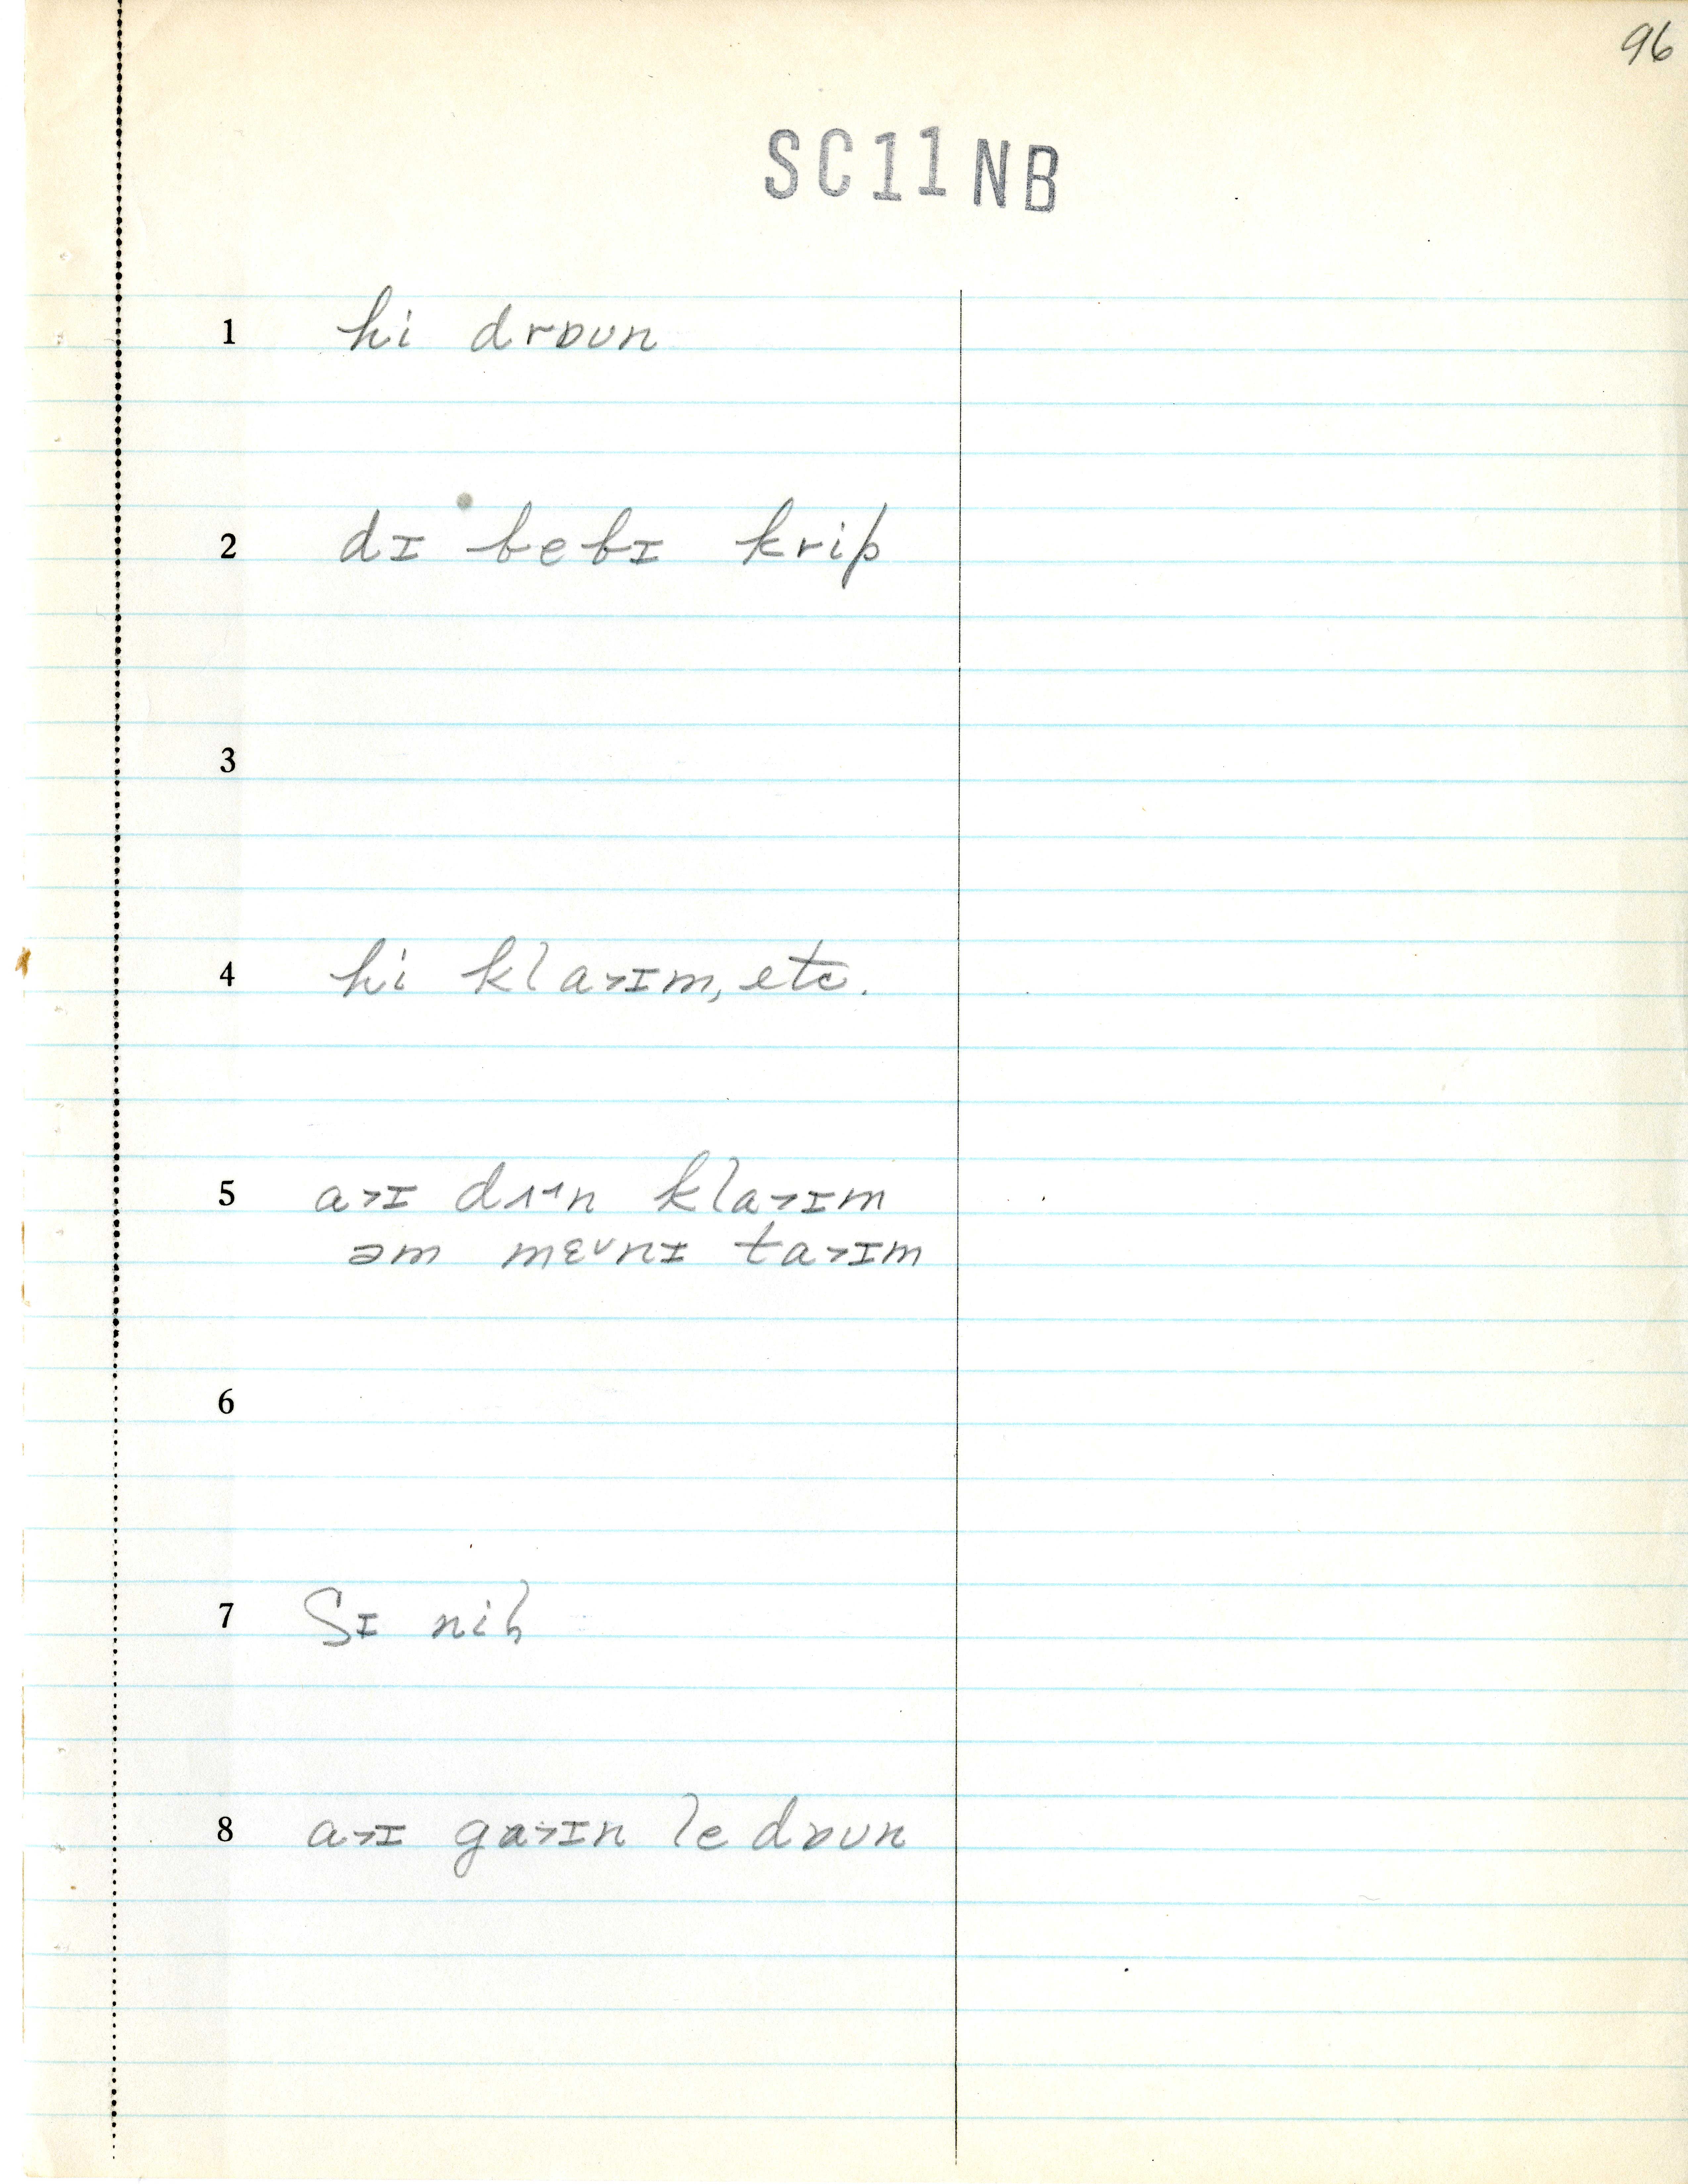 96
SC11NB
1 hi drɒun
2 dɪ bebɪ krip
3
4 hi kla˃ɪm, etc.
5 a˃ɪ dɪ˔˂n kla˃ɪm
əm mɛ˅nɪ ta˃ɪm
6
7 ʃɪ niɫ
8 a˃ɪ ga˃ɪn le dɒun